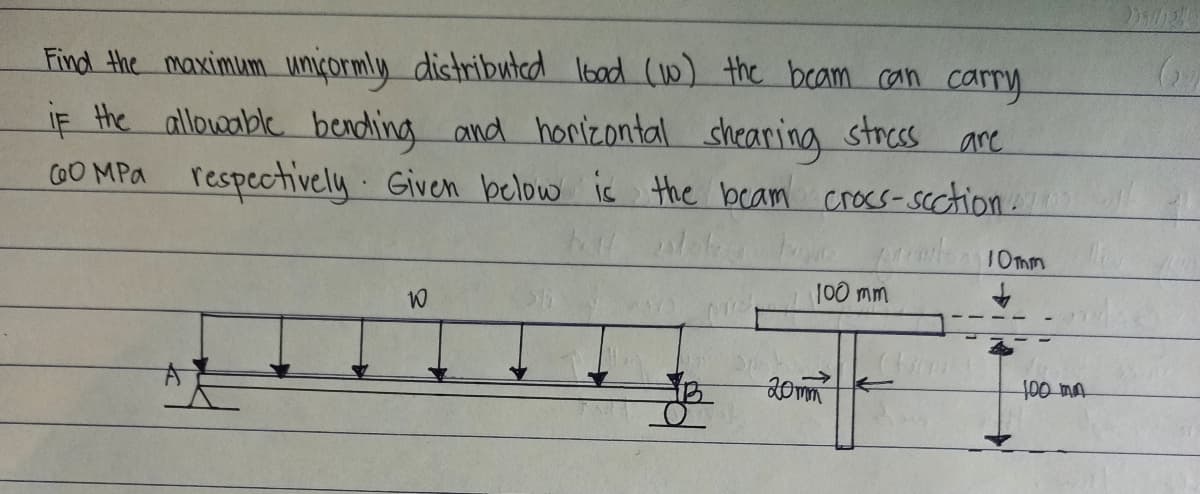 Find the maximum uniformly distributed load (w) the beam can carry
if the allowable bending and horizontal shearing stress are
60 MPa respectively. Given below is the beam cross-section.
10mm
w
100 mm
A
B
20mm
100 mm